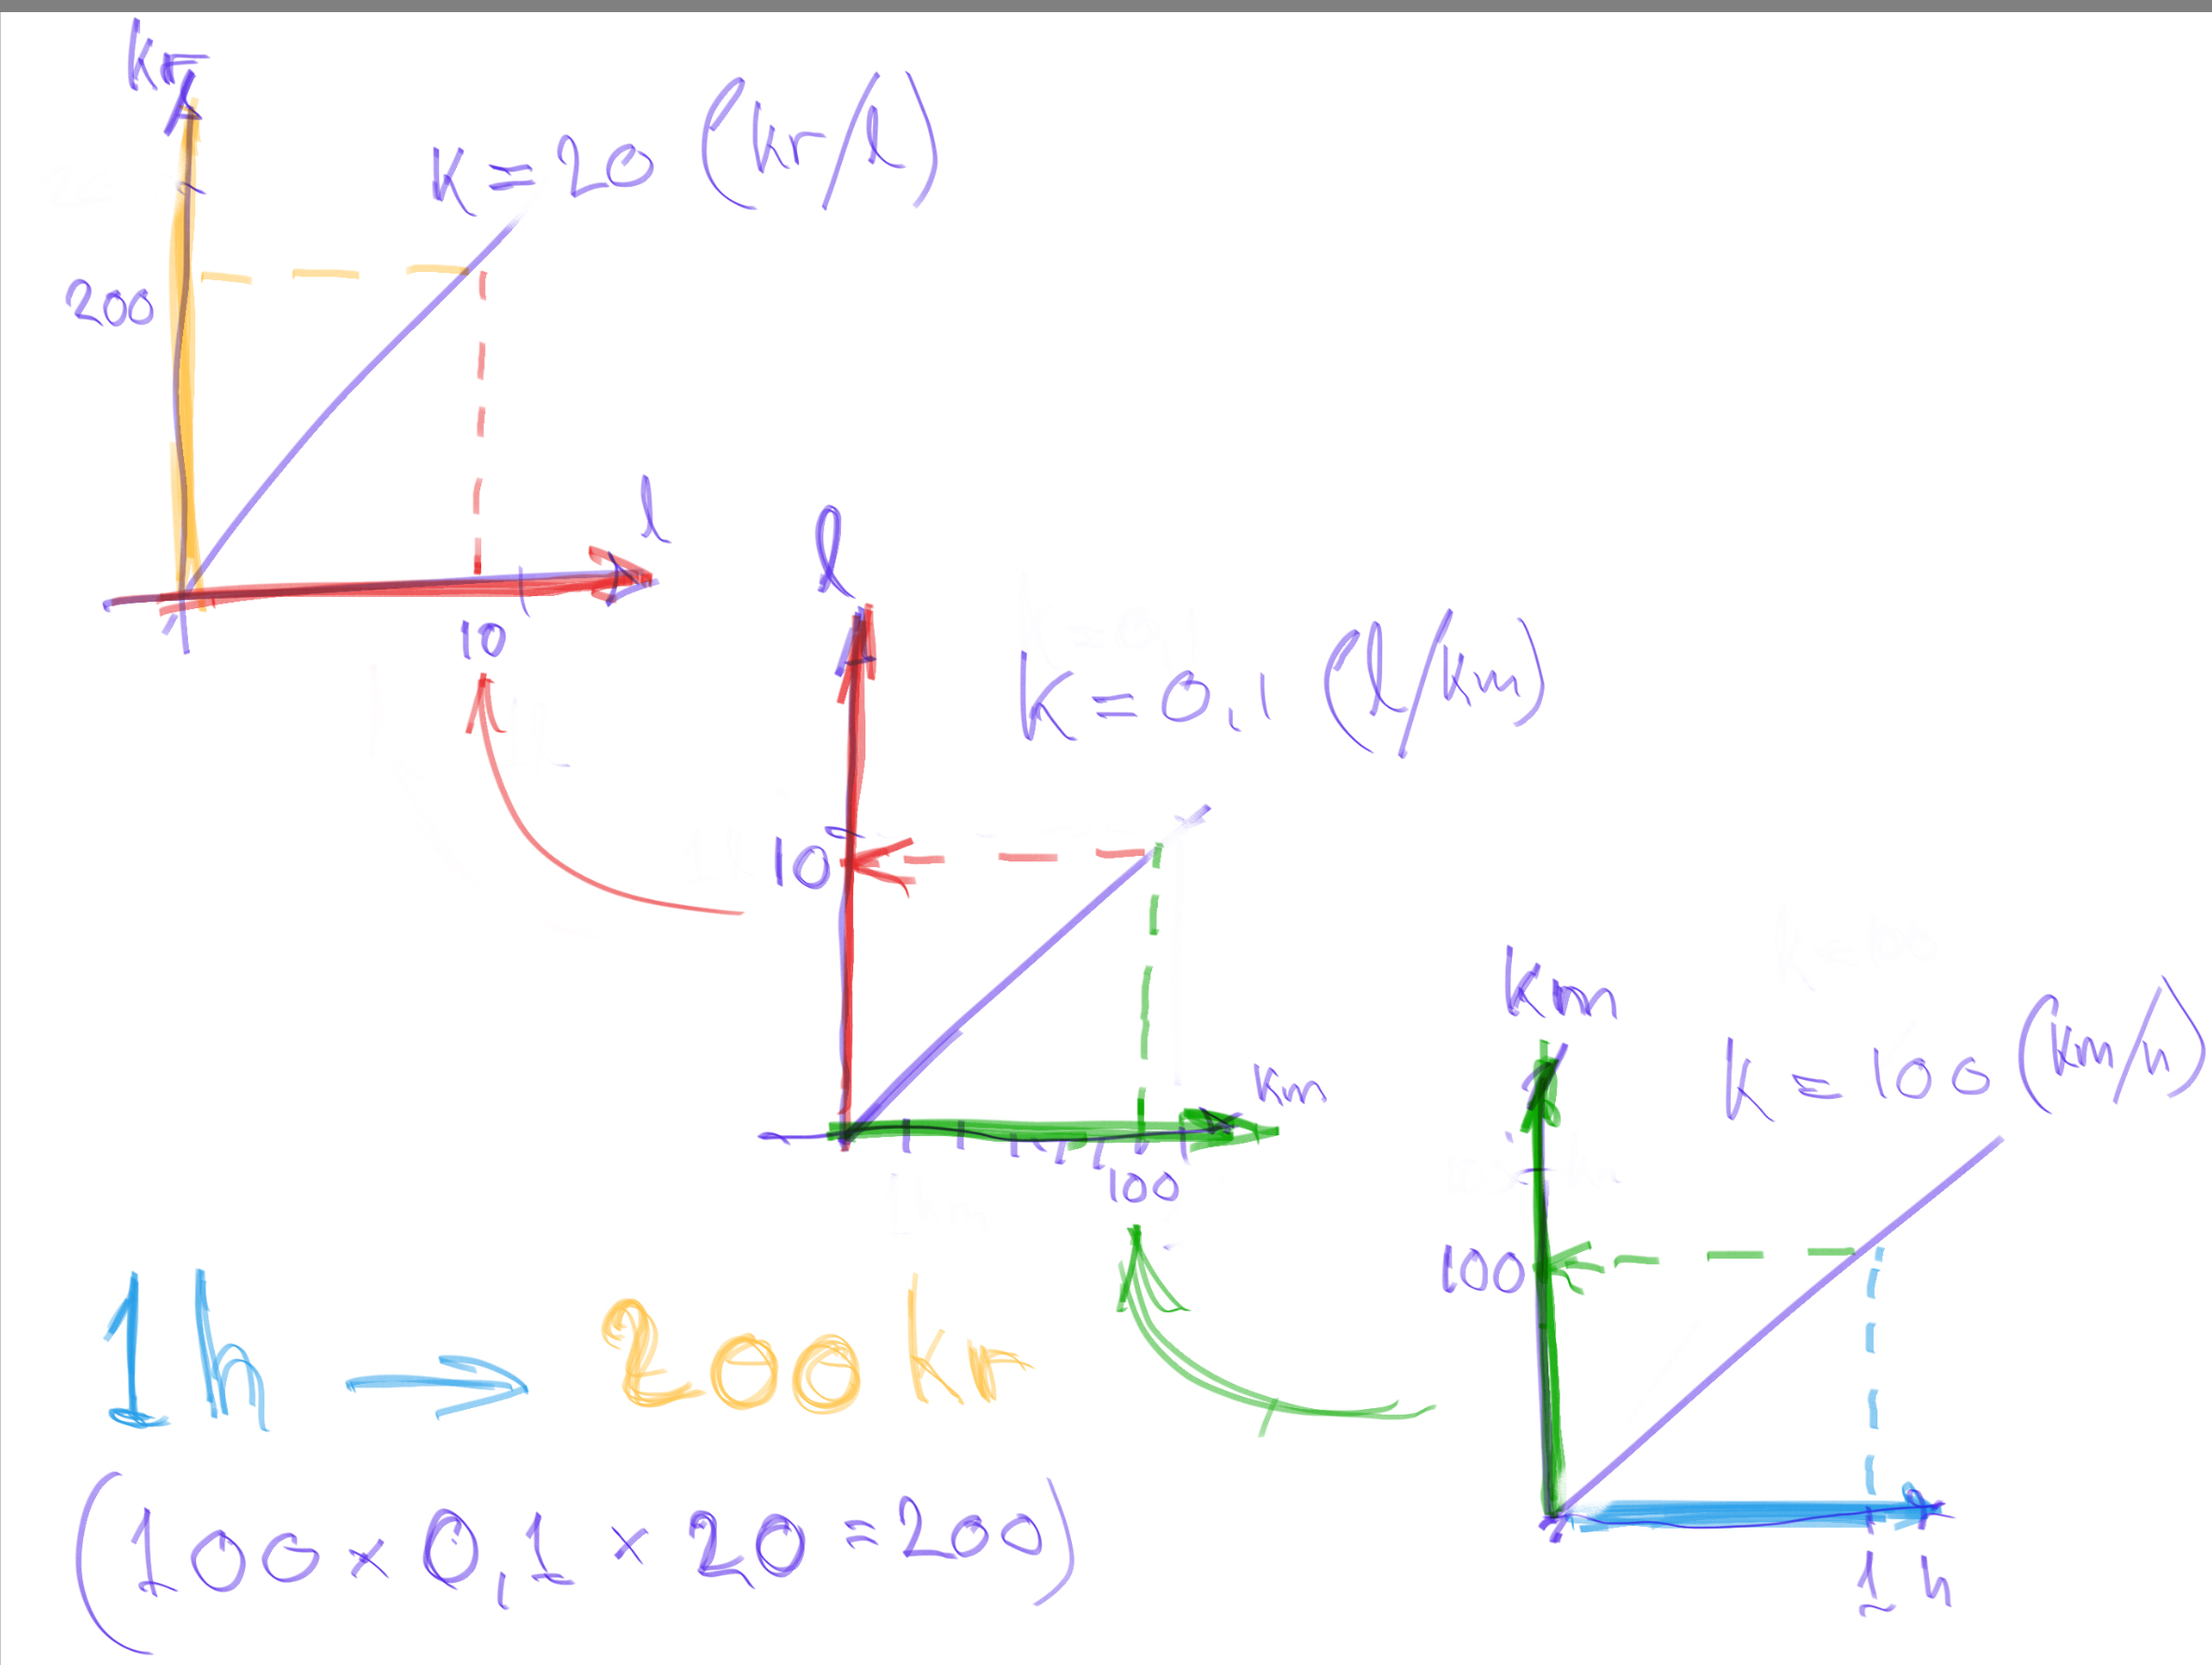 kr
k = 20 (kr/l)
200
l
10
l
k = 0,1 (l/km)
10
km
100
km
k = 100 (km/h)
100
1 h
1h → 200 kr
(100 × 0,1 × 20 = 200)